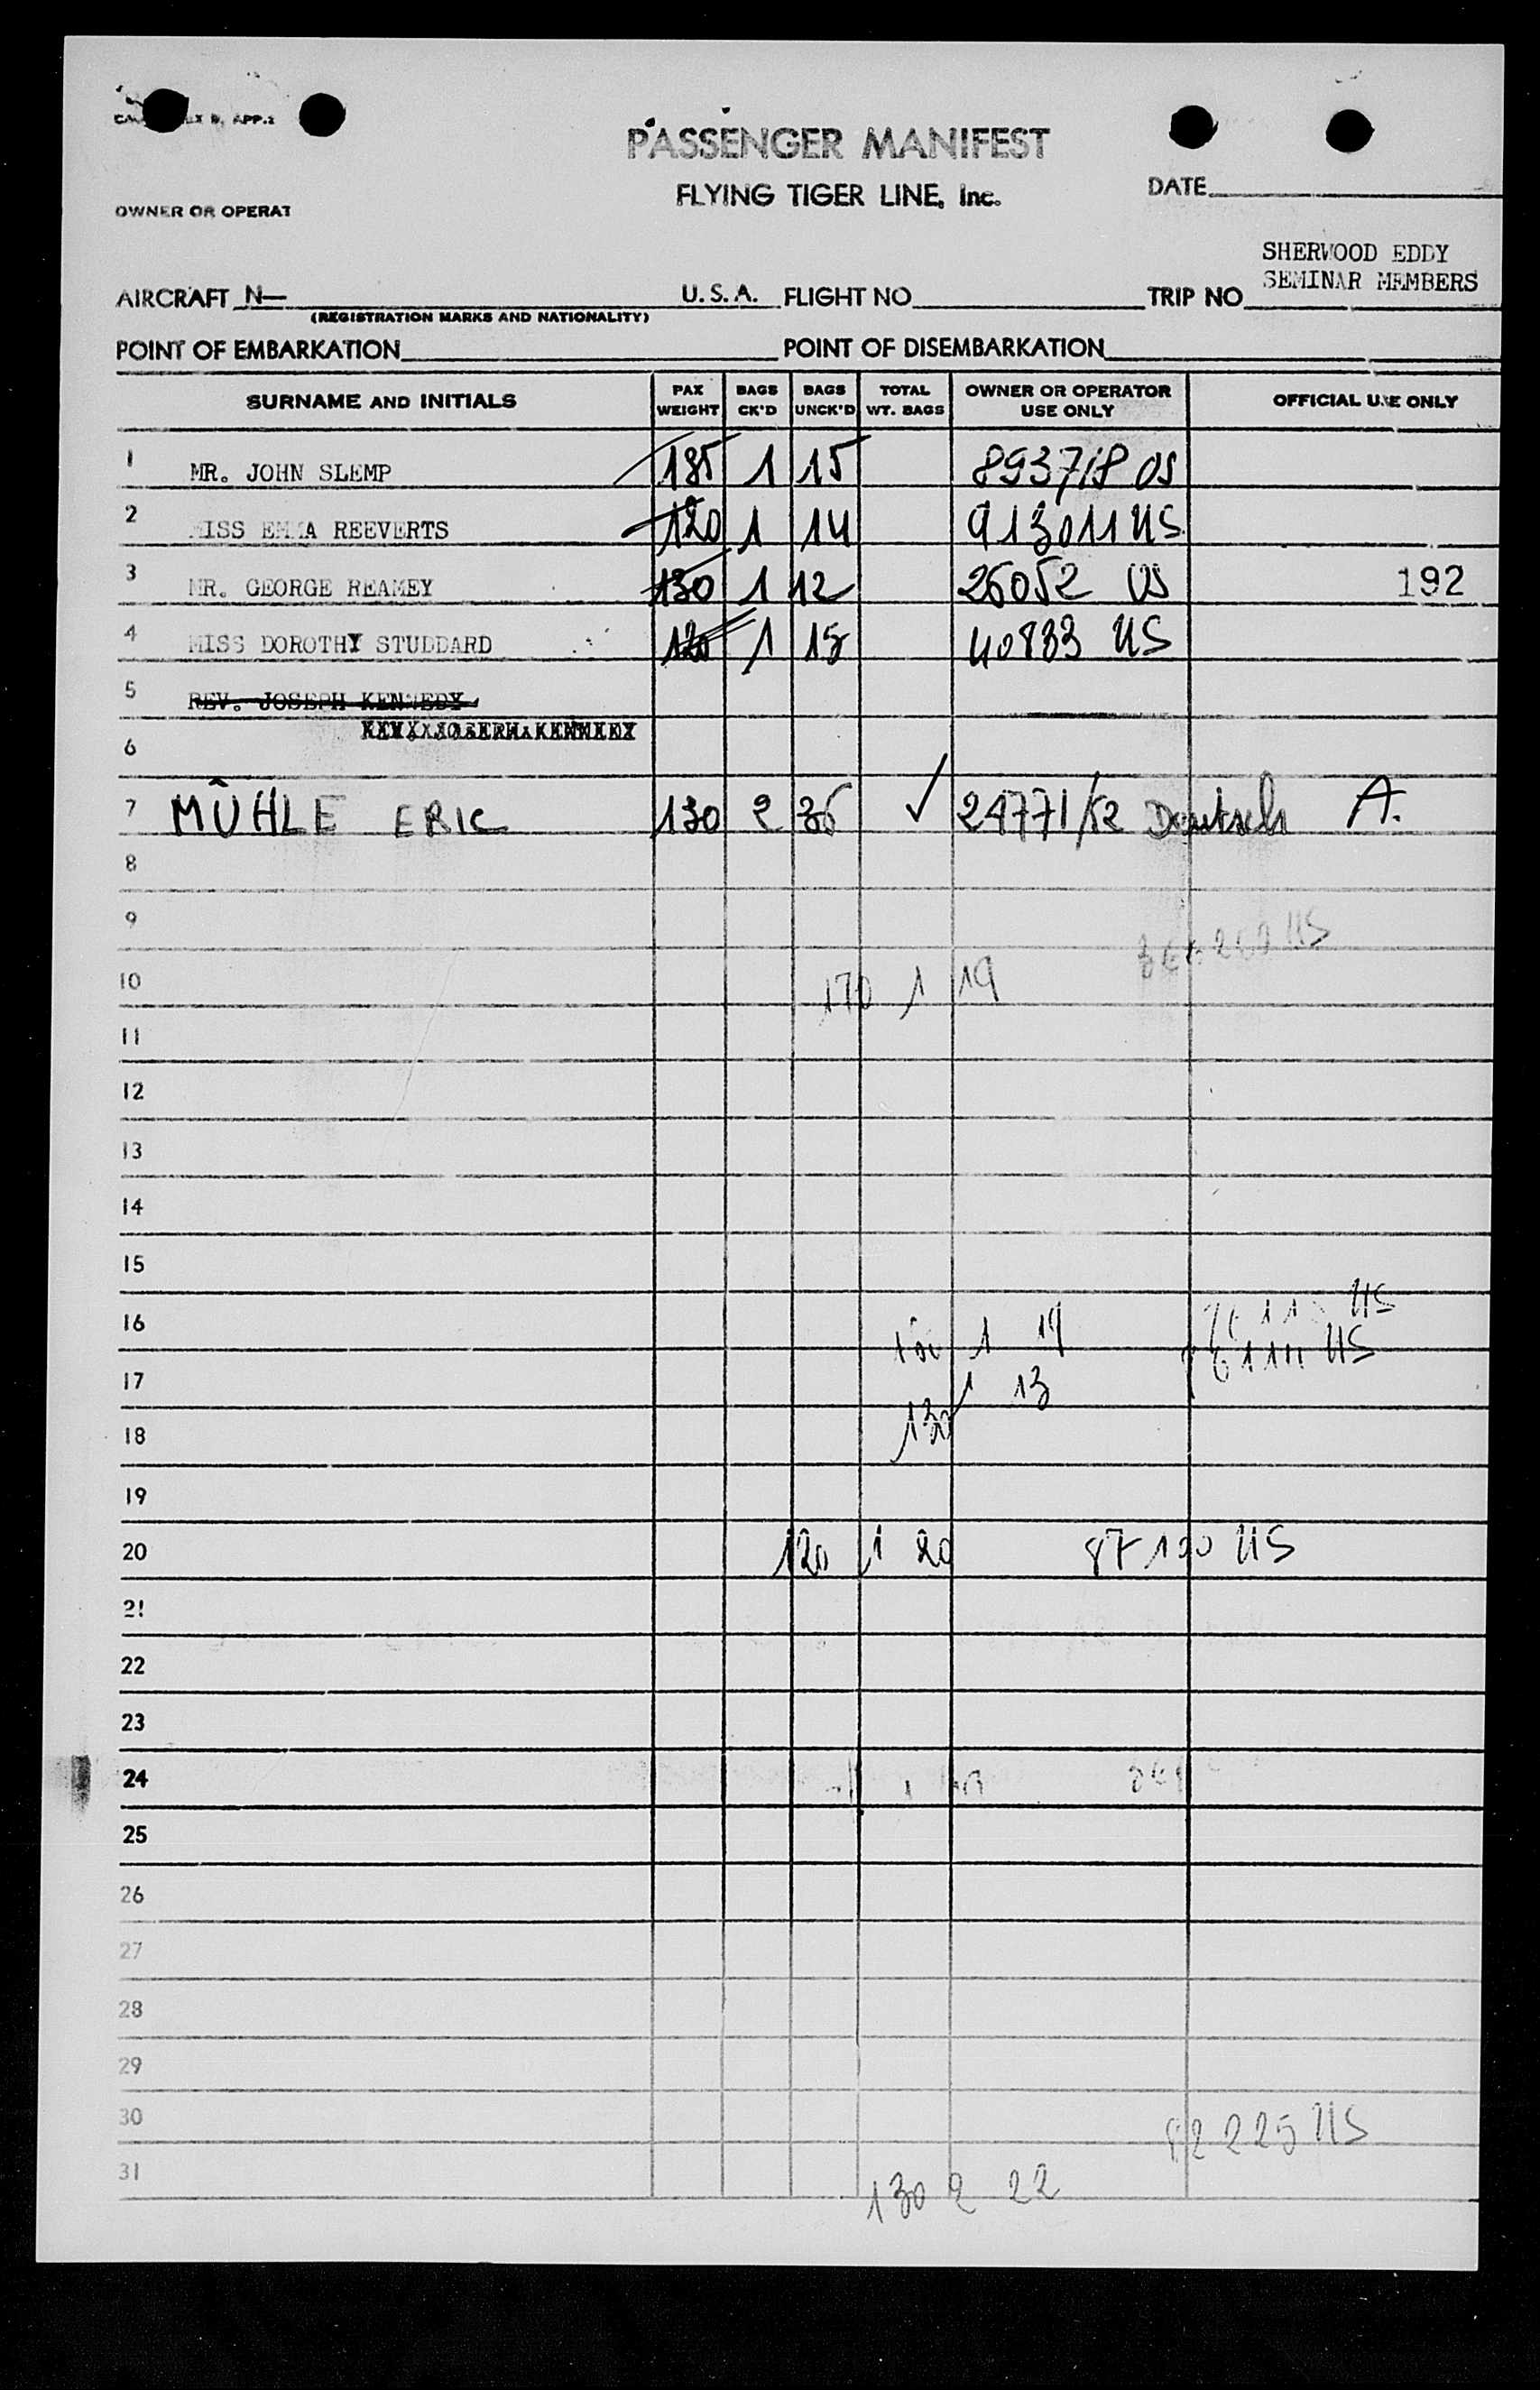 APP.2
PASSENGER MANIFEST
FLYING TIGER LINE, Inc.
DATE
OWNER OR OPERAT
SHERWOOD EDDY
SEMINAR MEMBERS
AIRCRAFT N— U. S. A. FLIGHT NO TRIP NO
(REGISTRATION MARKS AND NATIONALITY)
POINT OF EMBARKATION POINT OF DISEMBARKATION
SURNAME AND INITIALS PAX WEIGHT BAGS CK'D BAGS UNCK'D TOTAL WT. BAGS OWNER OR OPERATOR USE ONLY OFFICIAL USE ONLY
1 MR. JOHN SLEMP 185 1 15 893718 US
2 MISS EMMA REEVERTS 120 1 14 913011 US
3 MR. GEORGE REAMEY 130 1 12 26052 US 192
4 MISS DOROTHY STUDDARD 120 1 15 40833 US
5 REV. JOSEPH KENNEDY
6
7 MÜHLE ERIC 130 2 36 ✓ 24771/52 Deutsch A.
8
9 US
10 170 1 19
11
12
13
14
15
16 1 19 US
17 1 13 US
18 130
19
20 120 1 20 87100 US
21
22
23
24
25
26
27
28
29
30 82225 US
31 130 2 22